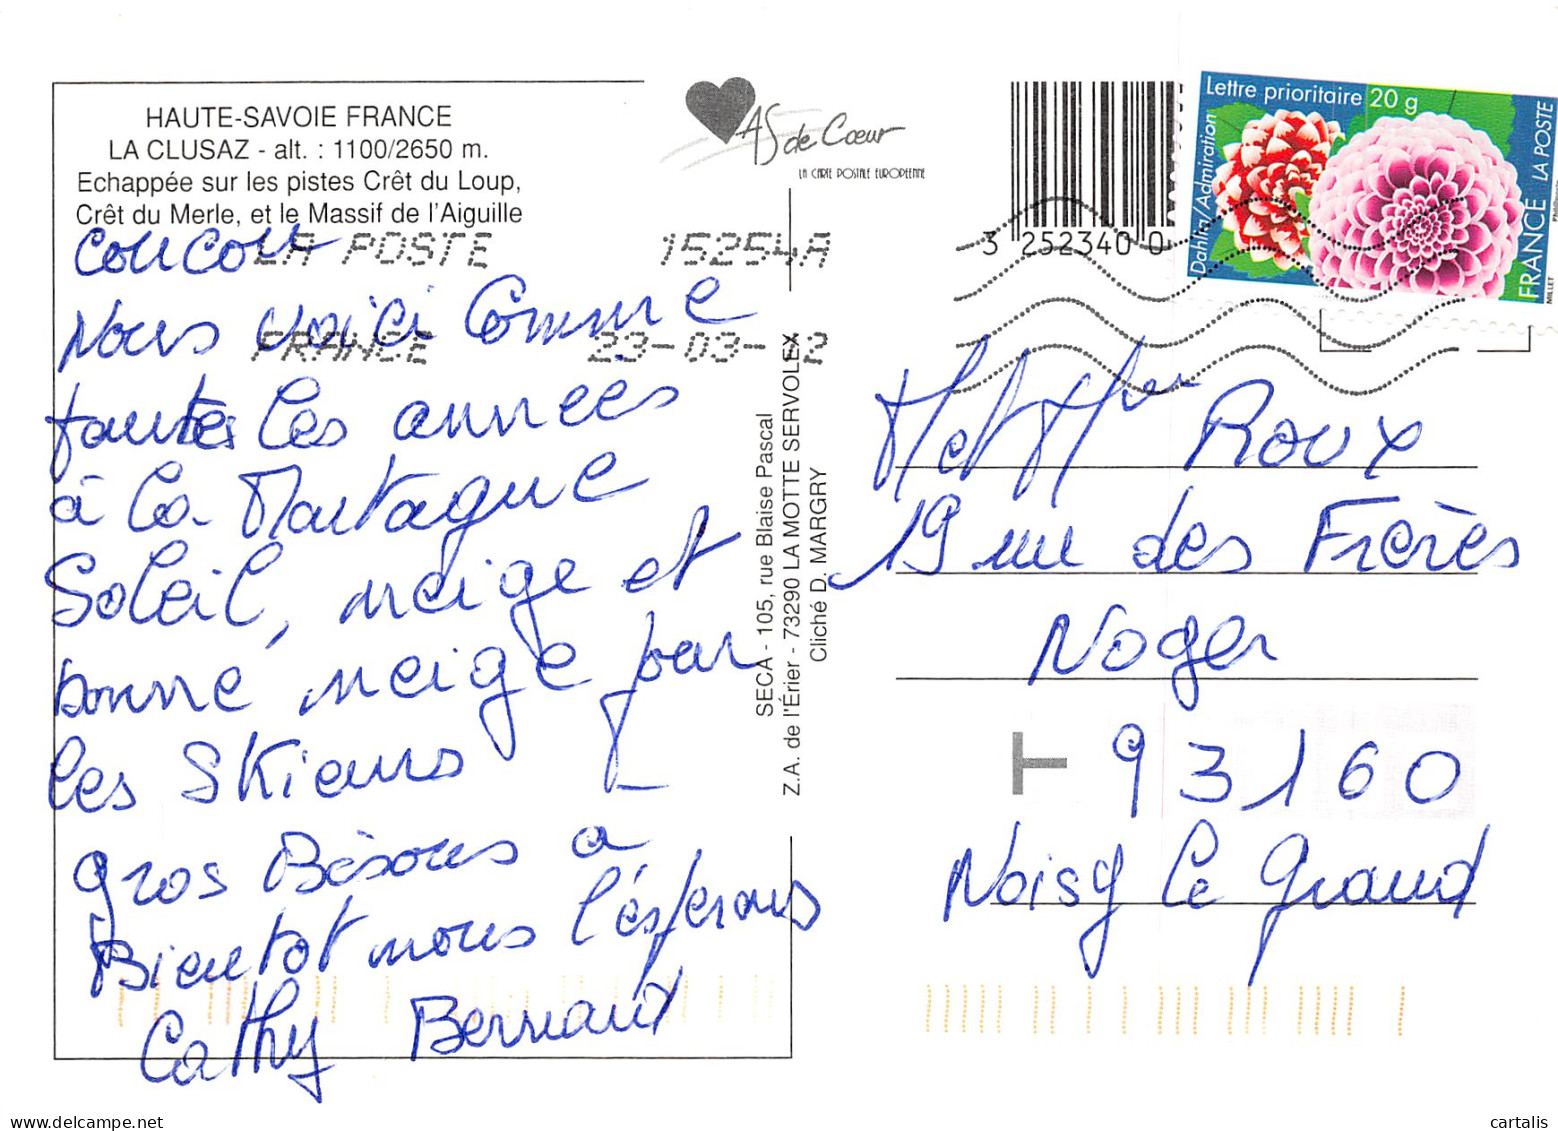 HAUTE-SAVOIE FRANCE
LA CLUSAZ - alt. : 1100/2650 m.
Echappée sur les pistes Crêt du Loup,
Crêt du Merle, et le Massif de l'Aiguille
AS de Cœur
LA CARTE POSTALE EUROPEENNE
3 252340 0
Lettre prioritaire 20 g
Dahlia/Admiration
FRANCE LA POSTE
MILLET
LA POSTE 15254A
FRANCE 23-03-12
coucou
Nous voici Comme
toutes les années
à la Montagne
Soleil, neige et
bonne neige pour
les Skieurs
gros Bisous a
Bientot nous l'esperons
Cathy Bernard
SECA - 105, rue Blaise Pascal
Z.A. de l'Érier - 73290 LA MOTTE SERVOLEX
Cliché D. MARGRY
M et Mme Roux
19 rue des Frères
Noger
T
93160
Noisy le grand
cartalis